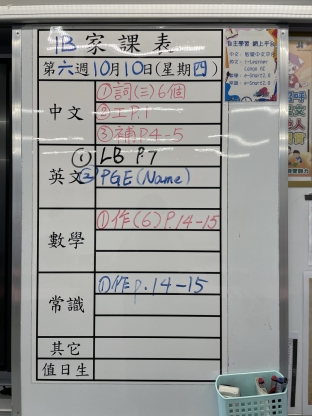 1B 家課表
第六週10月10日(星期四)
中文
①詞(三)6個
②工P.1
③補P4-5
英文
① LB P.7
② PGE (Name)
數學
①作(6)P.14-15
常識
①作p.14-15
其它
值日生
自主學習 網上平台